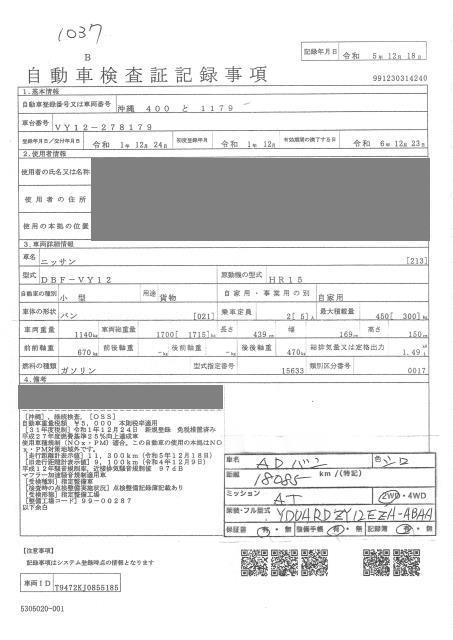 1037
B
記録年月日 令和 5年 12月 18日
自動車検査証記録事項
991230314240
1.基本情報
自動車登録番号又は車両番号 沖縄 400 と 1179
車台番号 VY12-278179
登録年月日/交付年月日 令和 1年 12月 24日 初度登録年月 令和 1年 12月 有効期間の満了する日 令和 6年 12月 23日
2.使用者情報
使用者の氏名又は名称
使用者の住所
使用の本拠の位置
3.車両詳細情報
車名 ニッサン [213]
型式 DBF-VY12 原動機の型式 HR15
自動車の種別 小型 用途 貨物 自家用・事業用の別 自家用
車体の形状 バン [021] 乗車定員 2[ 5]人 最大積載量 450[ 300]kg
車両重量 1140kg 車両総重量 1700[ 1715]kg 長さ 439cm 幅 169cm 高さ 150cm
前前軸重 670kg 前後軸重 -kg 後前軸重 -kg 後後軸重 470kg 総排気量又は定格出力 1.49L
燃料の種類 ガソリン 型式指定番号 15633 類別区分番号 0017
4.備考
[沖縄],継続検査,[OSS]
自動車重量税額 ¥5,000 本則税率適用
[31年度税制]令和1年12月24日 新規登録 免税措置済み
平成27年度燃費基準25%向上達成車
使用車種規制(NOx・PM)適合,この自動車の使用の本拠はNO
x・PM対策地域外です。
[走行距離計表示値]11,300km(令和5年12月18日)
[旧走行距離計表示値]9,100km(令和4年12月9日)
平成12年騒音規制車,近接排気騒音規制値 97dB
マフラー加速騒音規制適用車
[受検種別]指定整備車
[検査時の点検整備実施状況]点検整備記録簿記載あり
[受検形態]指定整備工場
[整備工場コード]99-00287
以下余白
車名 ADバン 色 シロ
距離 18085 km/(特記)
ミッション AT 2WD・4WD
架装・フル型式 YDUARDZY12EZA-ABAA
保証書 有・無 整備手帳 有・無 記録簿 有・無
[注意事項]
記録事項はシステム登録時点の情報となります
車両ID T9472KJ0855185
5305020-001